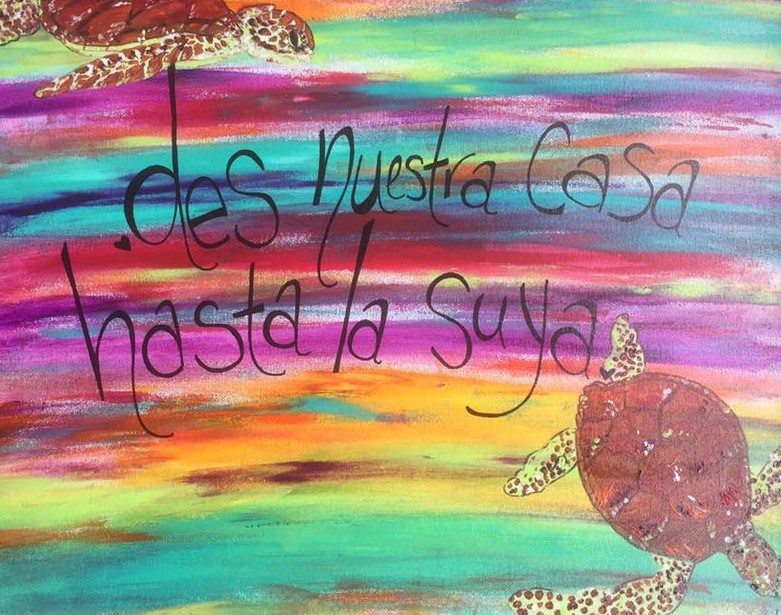 des nuestra Casa
hasta la suya